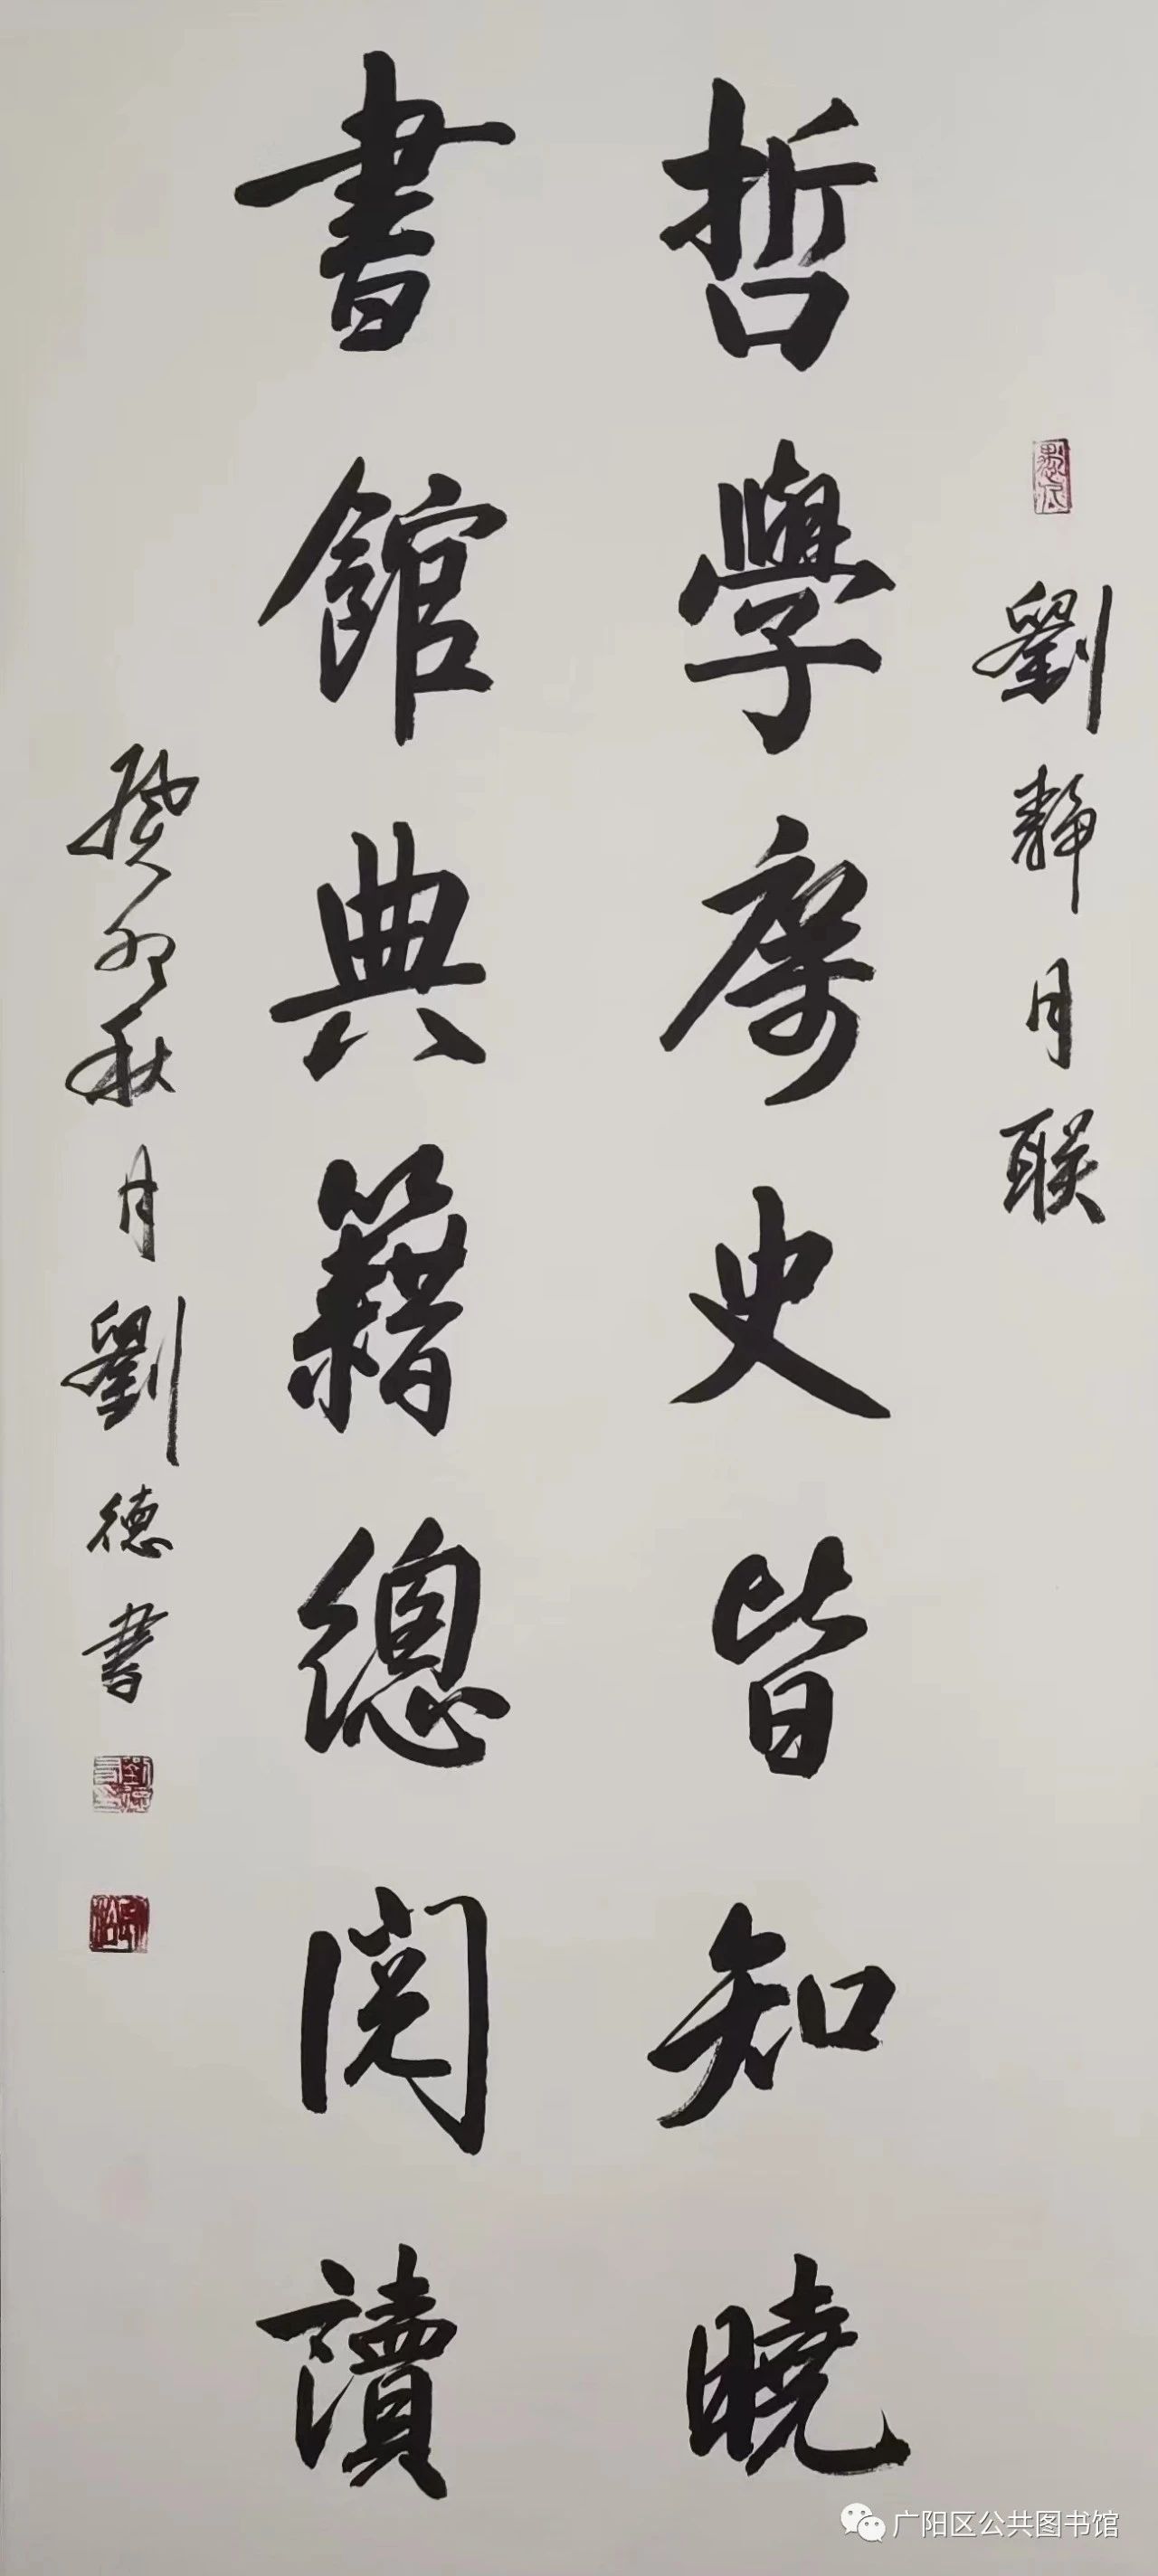 劉靜月联
哲學歷史皆知曉
書館典籍總閱讀
癸卯秋月劉德書
广阳区公共图书馆